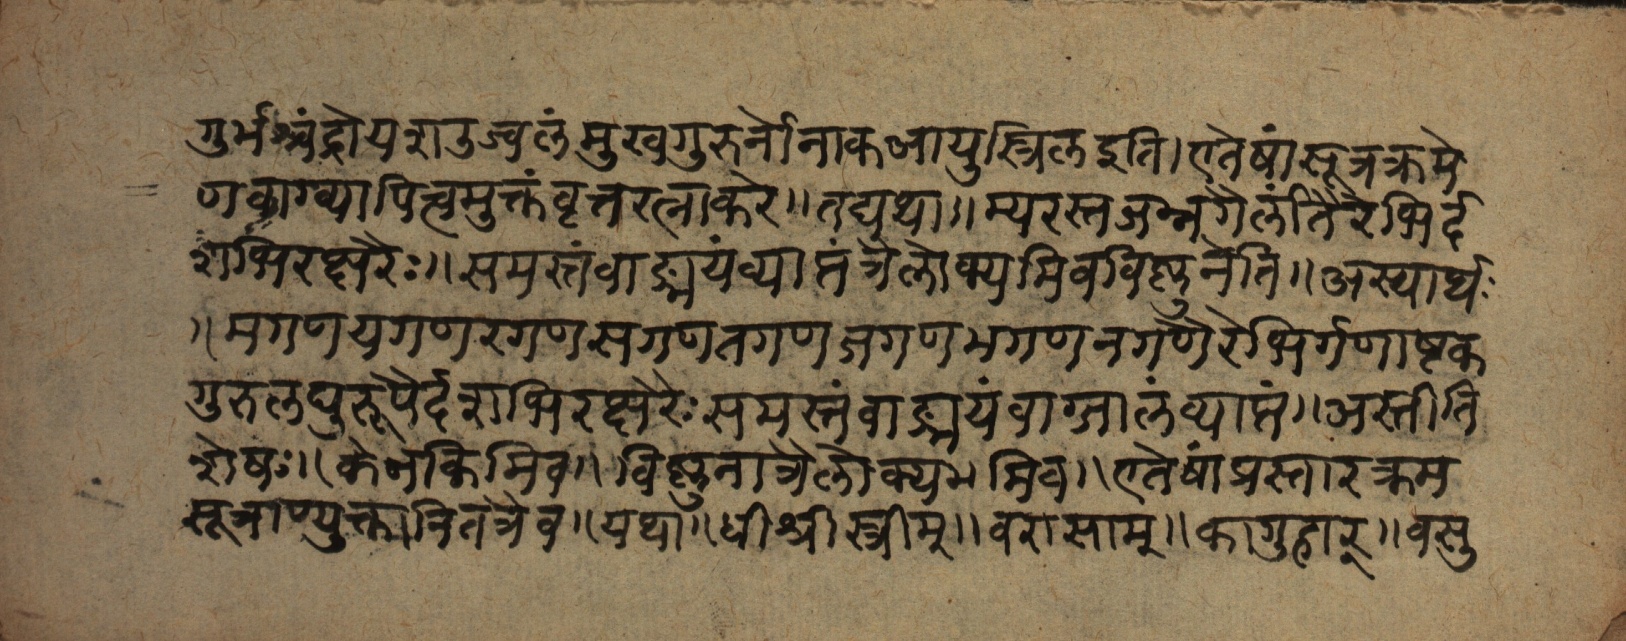 गुर्भश्चंद्रोयशउज्वलंमुखगुरुर्नोनाकआयुस्त्रिलइति।एतेषांसूत्रक्रमे
णवाग्व्यापित्वमुक्तंवृत्तरत्नाकरे॥तद्यथा॥म्यरस्तजभ्नगैर्लांतैरेभिर्द
शभिरक्षरैः॥समस्तंवाङ्मयंव्याप्तंत्रैलोक्यमिवविष्णुनेति॥अस्यार्थः
॥मगणयगणरगणसगणतगणजगणभगणनगणैरेभिर्गणाष्टक
गुरुलघुरूपैर्दशभिरक्षरैःसमस्तंवाङ्मयंवाग्जालंव्याप्तं॥अस्तीति
शेषः॥केनकिमिव॥विष्णुनात्रैलोक्यमिव॥एतेषांप्रस्तारक्रम
सूत्राण्युक्तानितत्रैव॥यथा॥धीश्रीस्त्रीम्॥वरासाम्॥कागुहार्॥वसु